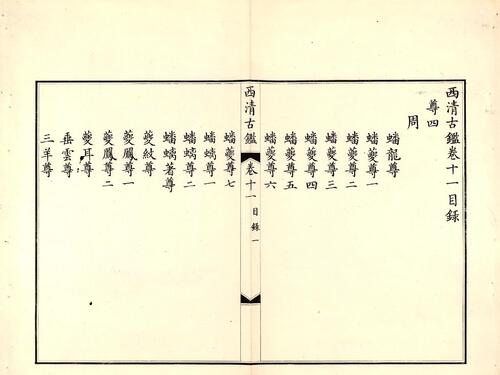 西清古鑑卷十一目錄
尊四
周
蟠龍尊
蟠夔尊一
蟠夔尊二
蟠夔尊三
蟠夔尊四
蟠夔尊五
蟠夔尊六
西清古鑑 卷十一 目錄 一
蟠夔尊七
蟠螭尊一
蟠螭尊二
蟠螭著尊
夔紋尊
夔鳳尊一
夔鳳尊二
夔耳尊
垂雲尊
三羊尊